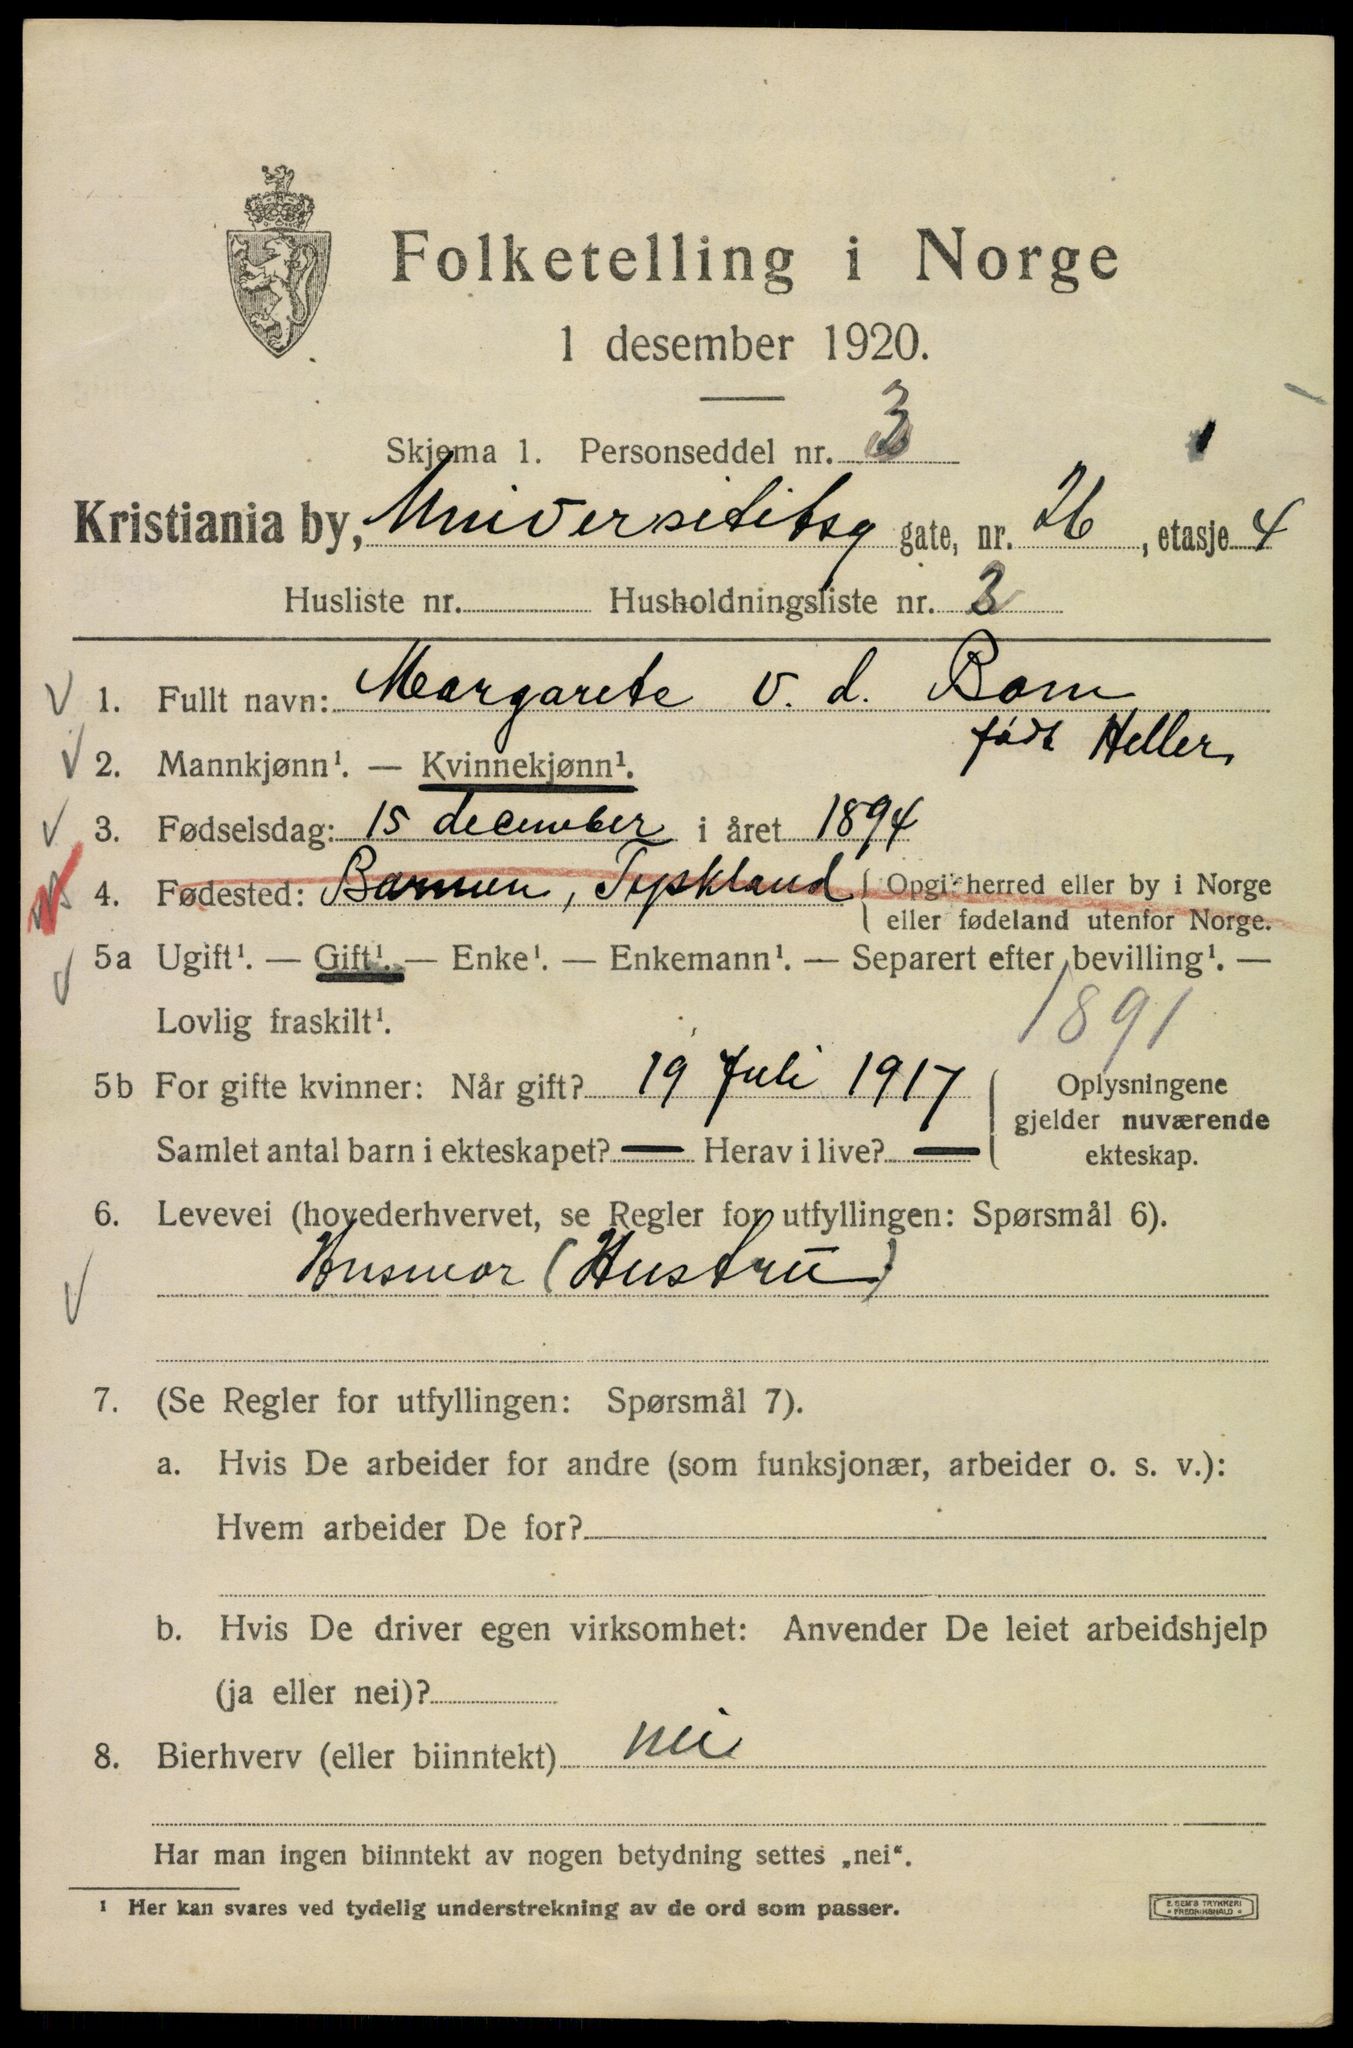 Folketelling i Norge
1 desember 1920.
Skjema 1. Personseddel nr. 3
Kristiania by, Universititsg gate, nr. 26, etasje 4
Husliste nr. Husholdningsliste nr. 3
1. Fullt navn: Margarete v. d. Bom
født Heller
2. Mannkjønn¹. — Kvinnekjønn¹.
3. Fødselsdag: 15 december i året 1894
4. Fødested: Barmen, Tyskland { Opgi herred eller by i Norge
eller fødeland utenfor Norge.
5a Ugift¹. — Gift¹. — Enke¹. — Enkemann¹. — Separert efter bevilling¹. —
Lovlig fraskilt¹.
1891
5b For gifte kvinner: Når gift? 19 Juli 1917
Samlet antal barn i ekteskapet? — Herav i live? —
Oplysningene
gjelder nuværende
ekteskap.
6. Levevei (hovederhvervet, se Regler for utfyllingen: Spørsmål 6).
Husmor (Hustru)
7. (Se Regler for utfyllingen: Spørsmål 7).
a. Hvis De arbeider for andre (som funksjonær, arbeider o. s. v.):
Hvem arbeider De for?
b. Hvis De driver egen virksomhet: Anvender De leiet arbeidshjelp
(ja eller nei)?
8. Bierhverv (eller biinntekt) nei
Har man ingen biinntekt av nogen betydning settes „nei“.
¹ Her kan svares ved tydelig understrekning av de ord som passer.
E. SEM'S TRYKKERI
FREDRIKSHALD